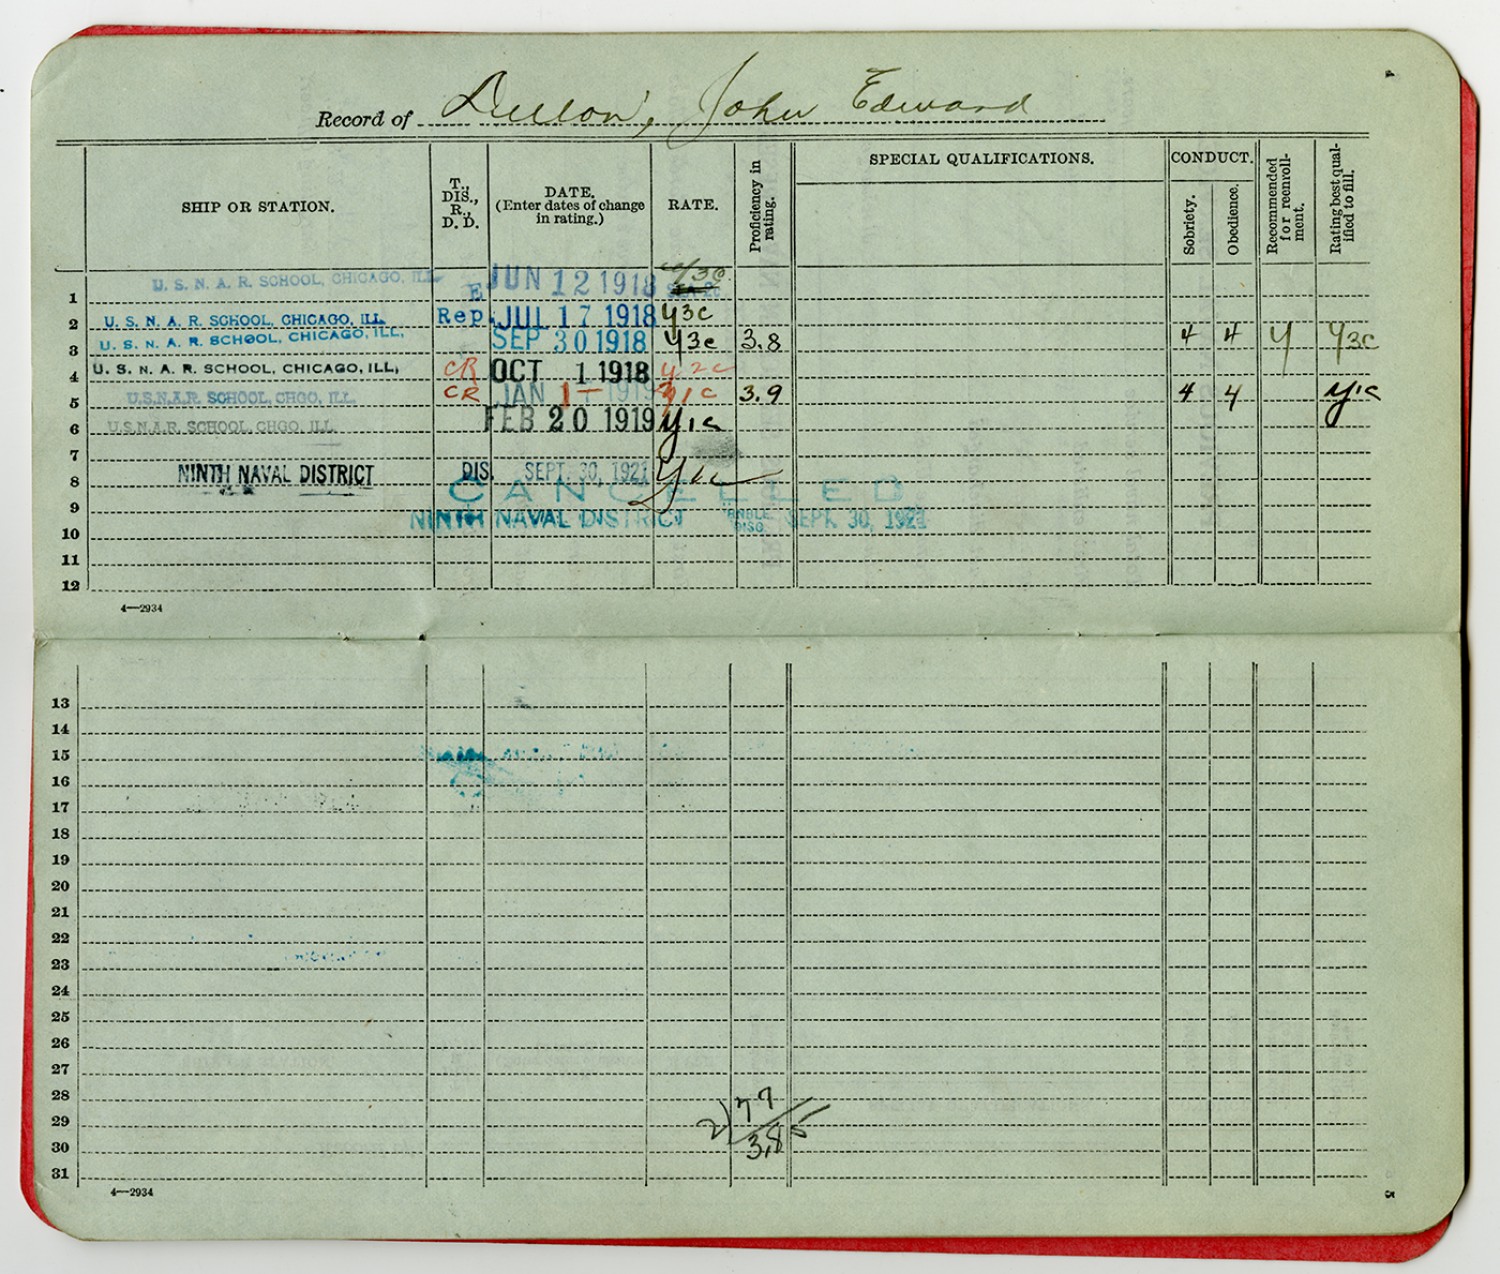 4
Record of Dillon, John Edward
SHIP OR STATION. T., DIS., R., D. D. DATE. (Enter dates of change in rating.) RATE. Proficiency in rating. SPECIAL QUALIFICATIONS. CONDUCT. Sobriety. Obedience. Recommended for reenrollment. Rating best qualified to fill.
1 U. S. N. A. R. SCHOOL, CHICAGO, ILL. E JUN 12 1918 y3c
2 U. S. N. A. R. SCHOOL, CHICAGO, ILL. Rep. JUL 17 1918 y3c
3 U. S. N. A. R. SCHOOL, CHICAGO, ILL, SEP 30 1918 y3c 3.8 4 4 y y3c
4 U. S. N. A. R. SCHOOL, CHICAGO, ILL, CR OCT 1 1918 y2c
5 U.S.N.A.R. SCHOOL, CHGO, ILL. CR JAN 1 1919 y1c 3.9 4 4 y1c
6 U.S.N.A.R. SCHOOL CHGO, ILL. FEB 20 1919 y1c
7
8 NINTH NAVAL DISTRICT DIS. SEPT. 30, 1921 y1c
CANCELLED
9 NINTH NAVAL DISTRICT DISC. SEPT. 30, 1921
10
11
12
4—2934
13
14
15
16
17
18
19
20
21
22
23
24
25
26
27
28
29 2)77
30 3.85
31
4—2934
5